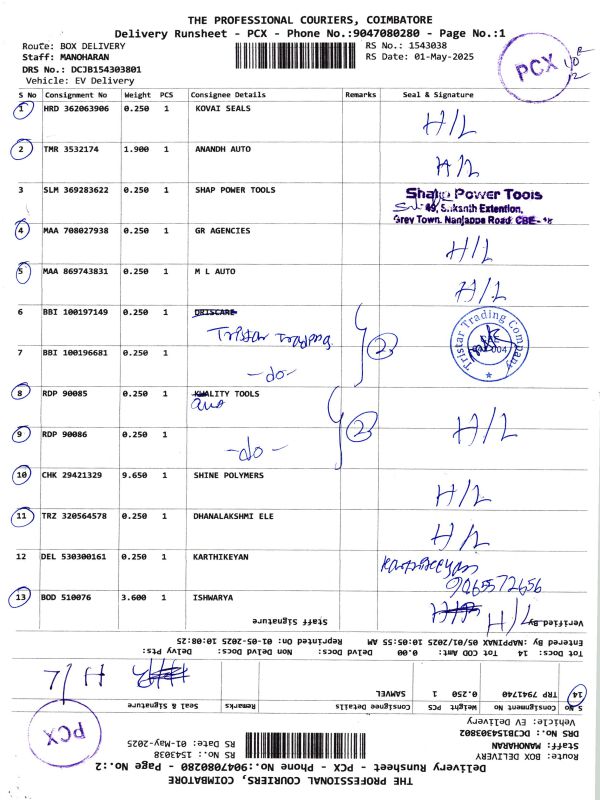 THE PROFESSIONAL COURIERS, COIMBATORE
Delivery Runsheet - PCX - Phone No.:9047080280 - Page No.:1
Route: BOX DELIVERY RS No.: 1543038
Staff: MANOHARAN RS Date: 01-May-2025
DRS No.: DCJB154303801
Vehicle: EV Delivery
PCX
S No Consignment No Weight PCS Consignee Details Remarks Seal & Signature
1 HRD 362063906 0.250 1 KOVAI SEALS H/L
2 TMR 3532174 1.900 1 ANANDH AUTO H/L
3 SLM 369283622 0.250 1 SHAP POWER TOOLS
Shap Power Tools
49, Srikanth Extention,
Grey Town, Nanjappa Road, CBE - 18
4 MAA 708027938 0.250 1 GR AGENCIES H/L
5 MAA 869743831 0.250 1 M L AUTO H/L
6 BBI 100197149 0.250 1 DRISCARE
Tristar Trading
2
Tristar Trading Company
7 BBI 100196681 0.250 1
-do-
8 RDP 90085 0.250 1 KWALITY TOOLS
2
H/L
9 RDP 90086 0.250 1
-do-
10 CHK 29421329 9.650 1 SHINE POLYMERS H/L
11 TRZ 320564578 0.250 1 DHANALAKSHMI ELE H/L
12 DEL 530300161 0.250 1 KARTHIKEYAN
Kartheeyan
9065572656
13 BOD 510076 3.600 1 ISHWARYA H/L
Staff Signature Verified By
Tot Docs: 14 Tot COD Amt: 0.00 Delvd Docs: Non Delvd Docs: Delvy Pts:
Entered By :NAPPINAX 05/01/2025 10:05:55 AM Reprinted On: 01-05-2025 10:08:25
THE PROFESSIONAL COURIERS, COIMBATORE
Delivery Runsheet - PCX - Phone No.:9047080280 - Page No.:2
Route: BOX DELIVERY RS No.: 1543038
Staff: MANOHARAN RS Date: 01-May-2025
DRS No.: DCJB154303802
Vehicle: EV Delivery
PCX
S No Consignment No Weight PCS Consignee Details Remarks Seal & Signature
14 TRP 7941740 0.250 1 SANVEL H/L